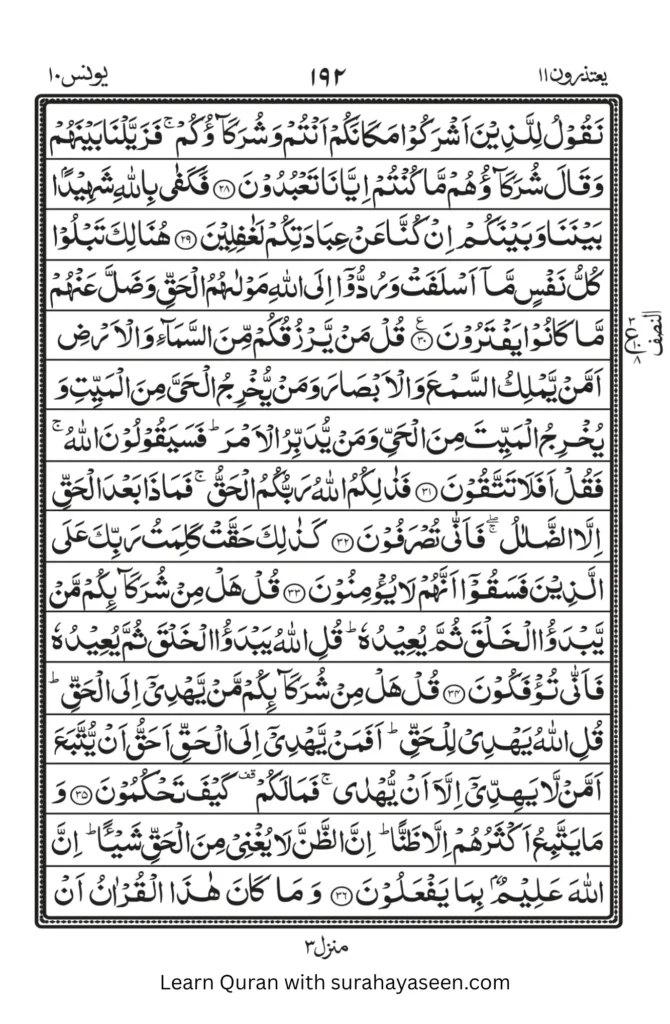 يعتذرون١١
١٩٢
يونس١٠
نَقُوۡلُ لِلَّذِيۡنَ اَشۡرَكُوۡا مَكَانَكُمۡ اَنۡتُمۡ وَشُرَكَآؤُكُمۡ ۚ فَزَيَّلۡنَا بَيۡنَهُمۡ
وَقَالَ شُرَكَآؤُهُمۡ مَّا كُنۡتُمۡ اِيَّانَا تَعۡبُدُوۡنَ ﴿۲۸﴾ فَكَفٰى بِاللّٰهِ شَهِيۡدًاۢ
بَيۡنَنَا وَبَيۡنَكُمۡ اِنۡ كُنَّا عَنۡ عِبَادَتِكُمۡ لَغٰفِلِيۡنَ ﴿۲۹﴾ هُنَالِكَ تَبۡلُوۡا
كُلُّ نَفۡسٍ مَّاۤ اَسۡلَفَتۡ وَرُدُّوۡۤا اِلَى اللّٰهِ مَوۡلٰٮهُمُ الۡحَـقِّ وَضَلَّ عَنۡهُمۡ
مَّا كَانُوۡا يَفۡتَرُوۡنَ ﴿۳۰﴾ ع قُلۡ مَنۡ يَّرۡزُقُكُمۡ مِّنَ السَّمَآءِ وَالۡاَرۡضِ
النصف
٣
ع
٨
اَمَّنۡ يَّمۡلِكُ السَّمۡعَ وَالۡاَبۡصَارَ وَمَنۡ يُّخۡرِجُ الۡحَـىَّ مِنَ الۡمَيِّتِ وَ
يُخۡرِجُ الۡمَيِّتَ مِنَ الۡحَـىِّ وَمَنۡ يُّدَبِّرُ الۡاَمۡرَ ؕ فَسَيَقُوۡلُوۡنَ اللّٰهُ ۚ
فَقُلۡ اَفَلَا تَتَّقُوۡنَ ﴿۳۱﴾ فَذٰلِكُمُ اللّٰهُ رَبُّكُمُ الۡحَـقُّ ۚ فَمَاذَا بَعۡدَ الۡحَـقِّ
اِلَّا الضَّلٰلُ ۖۚ فَاَنّٰى تُصۡرَفُوۡنَ ﴿۳۲﴾ كَذٰلِكَ حَقَّتۡ كَلِمَتُ رَبِّكَ عَلَى
الَّذِيۡنَ فَسَقُوۡۤا اَنَّهُمۡ لَا يُؤۡمِنُوۡنَ ﴿۳۳﴾ قُلۡ هَلۡ مِنۡ شُرَكَآئِكُمۡ مَّنۡ
يَّبۡدَؤُا الۡخَـلۡقَ ثُمَّ يُعِيۡدُهٗ ؕ قُلِ اللّٰهُ يَبۡدَؤُا الۡخَـلۡقَ ثُمَّ يُعِيۡدُهٗ
فَاَنّٰى تُؤۡفَكُوۡنَ ﴿۳۴﴾ قُلۡ هَلۡ مِنۡ شُرَكَآئِكُمۡ مَّنۡ يَّهۡدِىۡۤ اِلَى الۡحَـقِّ ؕ
قُلِ اللّٰهُ يَهۡدِىۡ لِلۡحَقِّ ؕ اَفَمَنۡ يَّهۡدِىۡۤ اِلَى الۡحَقِّ اَحَقُّ اَنۡ يُّتَّبَعَ
اَمَّنۡ لَّا يَهِدِّىۡۤ اِلَّاۤ اَنۡ يُّهۡدٰى ۚ فَمَا لَكُمۡ قف كَيۡفَ تَحۡكُمُوۡنَ ﴿۳۵﴾ وَ
مَا يَتَّبِعُ اَكۡثَرُهُمۡ اِلَّا ظَنًّا ؕ اِنَّ الظَّنَّ لَا يُغۡنِىۡ مِنَ الۡحَـقِّ شَيۡـًٔا ؕ اِنَّ
اللّٰهَ عَلِيۡمٌۢ بِمَا يَفۡعَلُوۡنَ ﴿۳۶﴾ وَمَا كَانَ هٰذَا الۡقُرۡاٰنُ اَنۡ
منزل٣
Learn Quran with surahayaseen.com